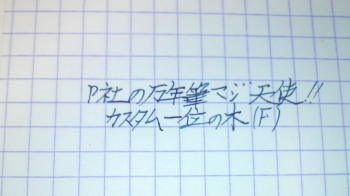 P社の万年筆マジ天使!!
カスタム一位の木(F)